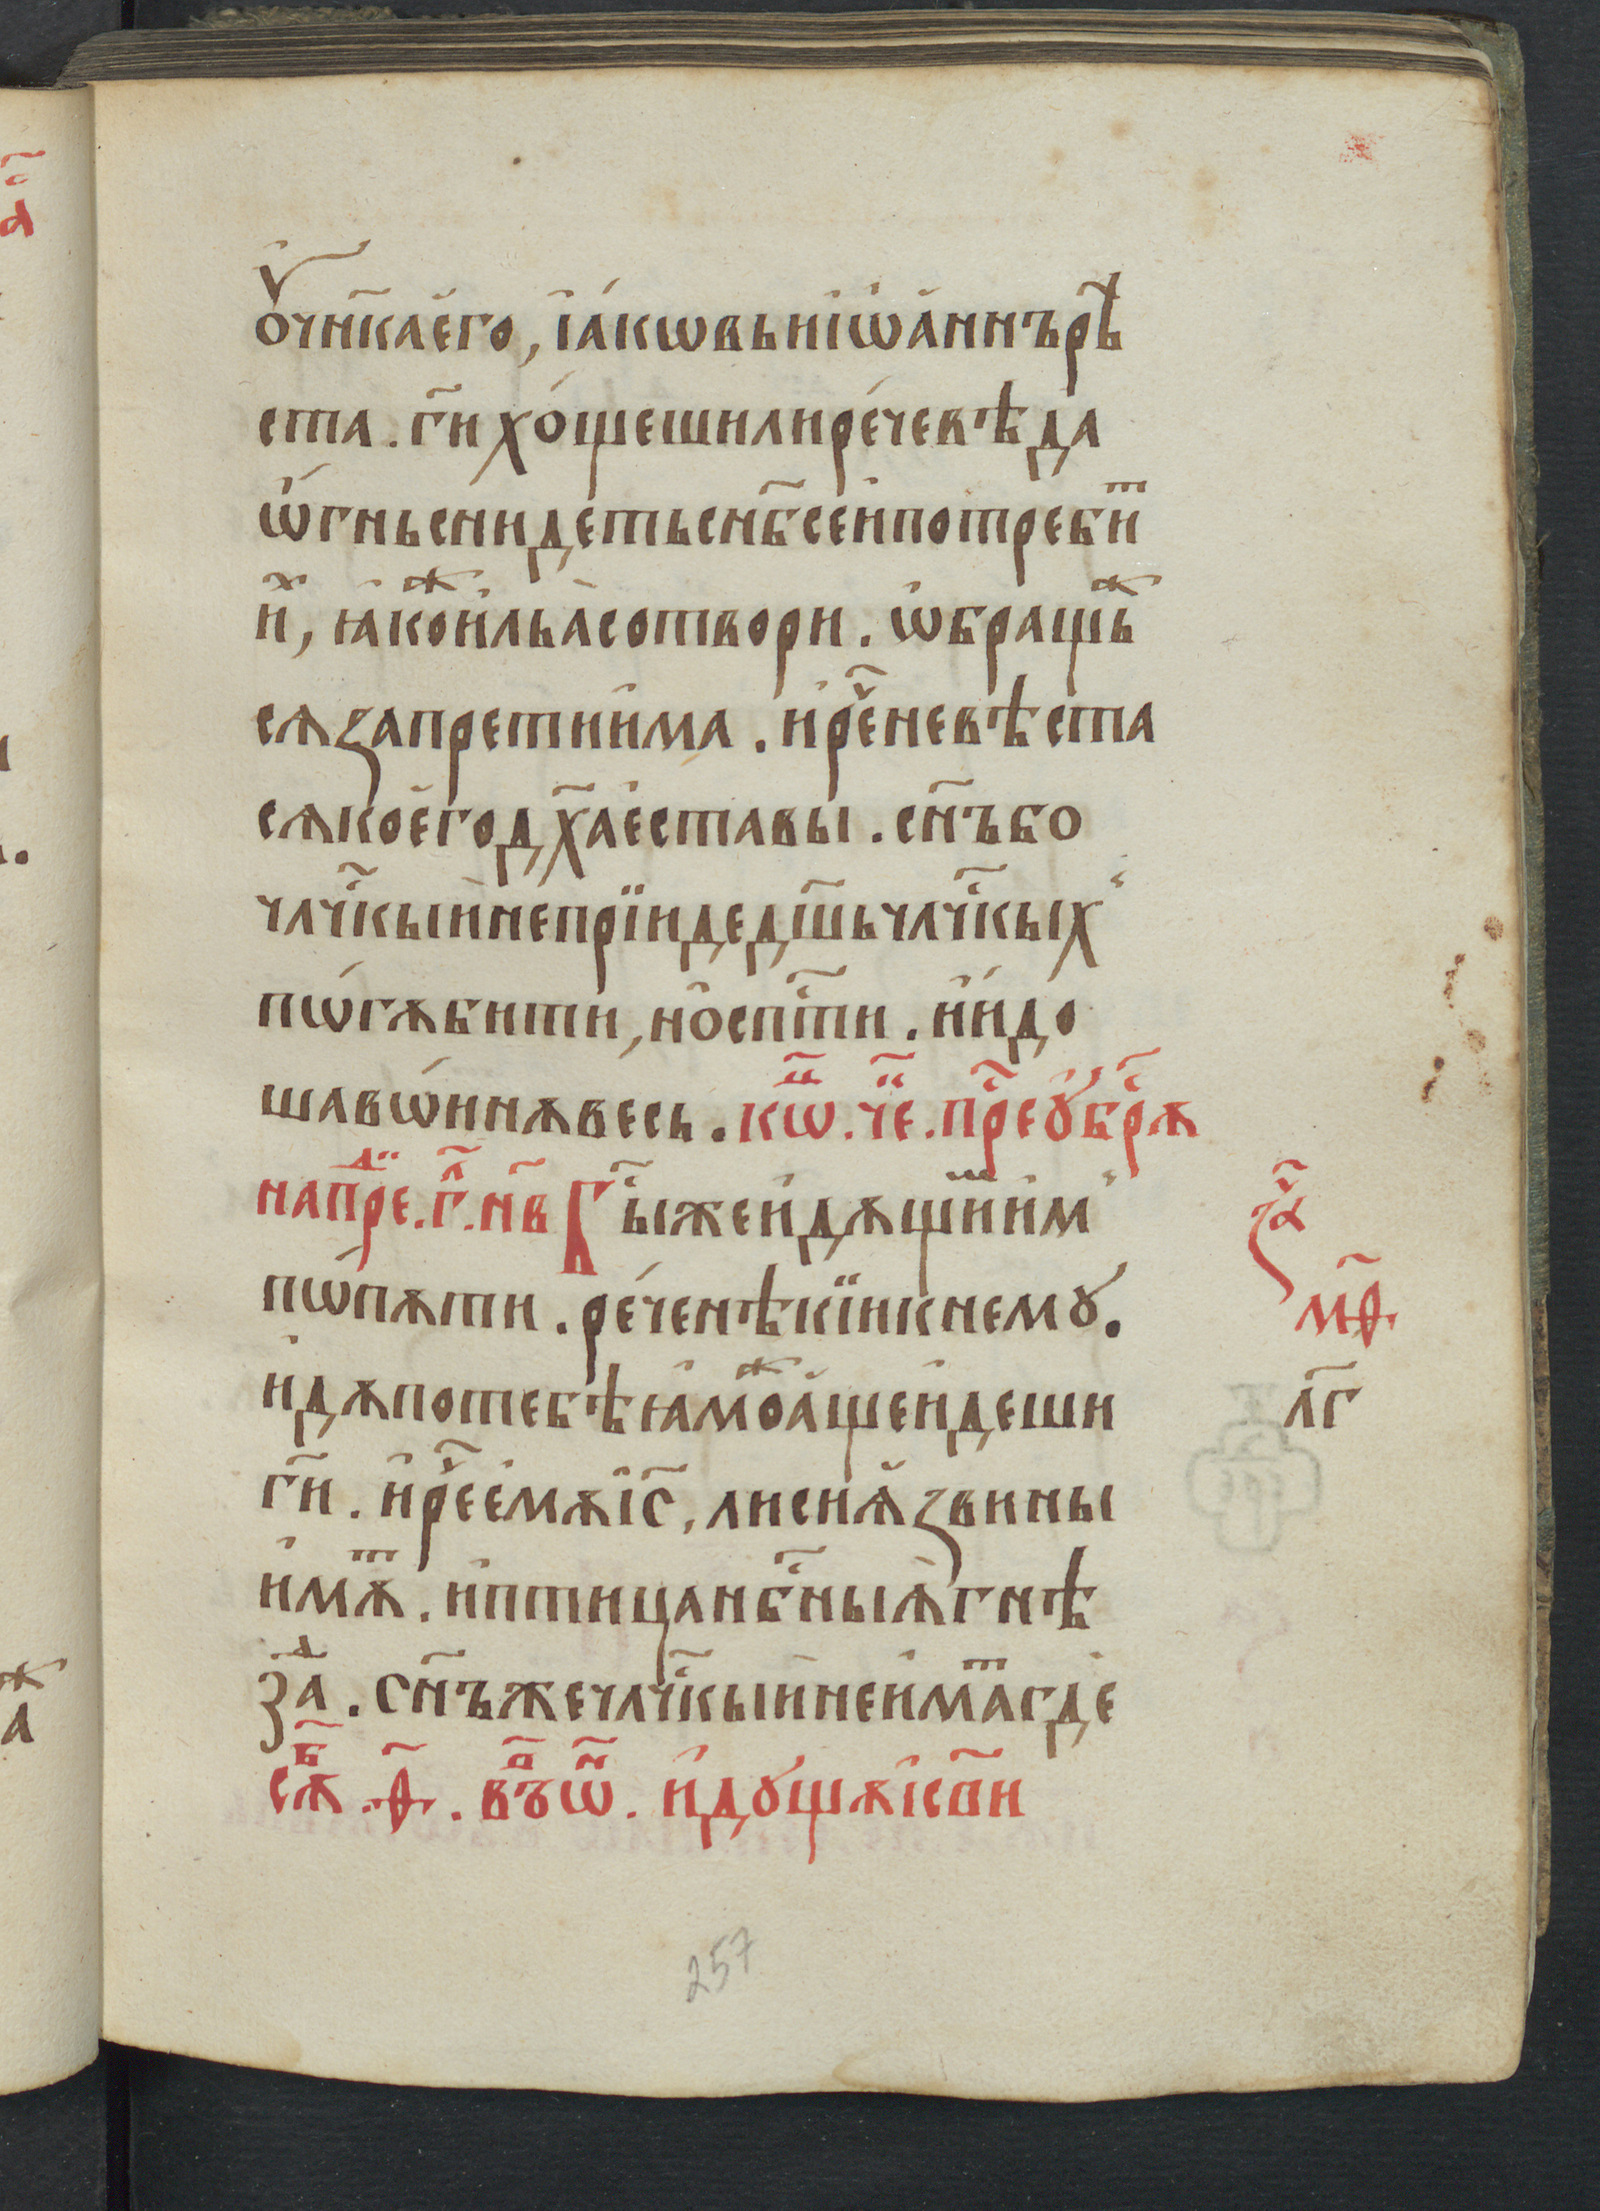 ѹчн҃ка е҆го , і҆а́кѡвь и҆ і҆ѡ҆а́ннъ рѣ
ста . гн҃и хо́щеши ли рече́вѣ да
ѡ҆́гнь сни́детъ с нб҃се и҆ потребиⷮ
иⷯ , ꙗ҆́коⷤ и҆лїа̀ сотвори . ѡ҆бращьⷤ
сѧ запрети и҆́ма . и҆ рⷱ҇е не вѣста
сѧ коег҆о дх҃а є҆ста вы . сн҃ъ бо
члч҇кый не прїиде дш҃ь члч҇кыхъ
пѡгѫбити , но сп҇сти . и҆ и҆до
ша в ѡ҆́ннѫ весь . кѡⷰ҇ . чеⷦ҇ . прⷣе ꙋ҆брⷭ҇ѧ
на прⷣе . г҃ . н҃в Бы́ же и҆дѫщиⷨ и҆м
по пѫти . рече нѣкїи к немꙋ .
идѫ по тебѣ ꙗ҆моⷤ а҆́ще и҆́деши
гн҃и . и҆ рⷱ҇е е҆мѫ і҆с҃ , лиси ꙗ҆звины
и҆мѫⷮ . и҆ птица нб҇ныѧ гнѣ
заⷣ . сн҃ъ же члч҇кый не и҆маⷮ где
сѫⷠ . ф҃ . въⷫ҇ ѡⷩ҇ . и҆дꙋщѫ і҆сⷪ҇ви
за҃ⷱ
мѳ҃
л҃г
257